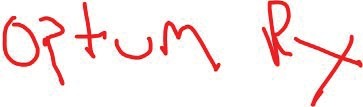 OPtuM Rx